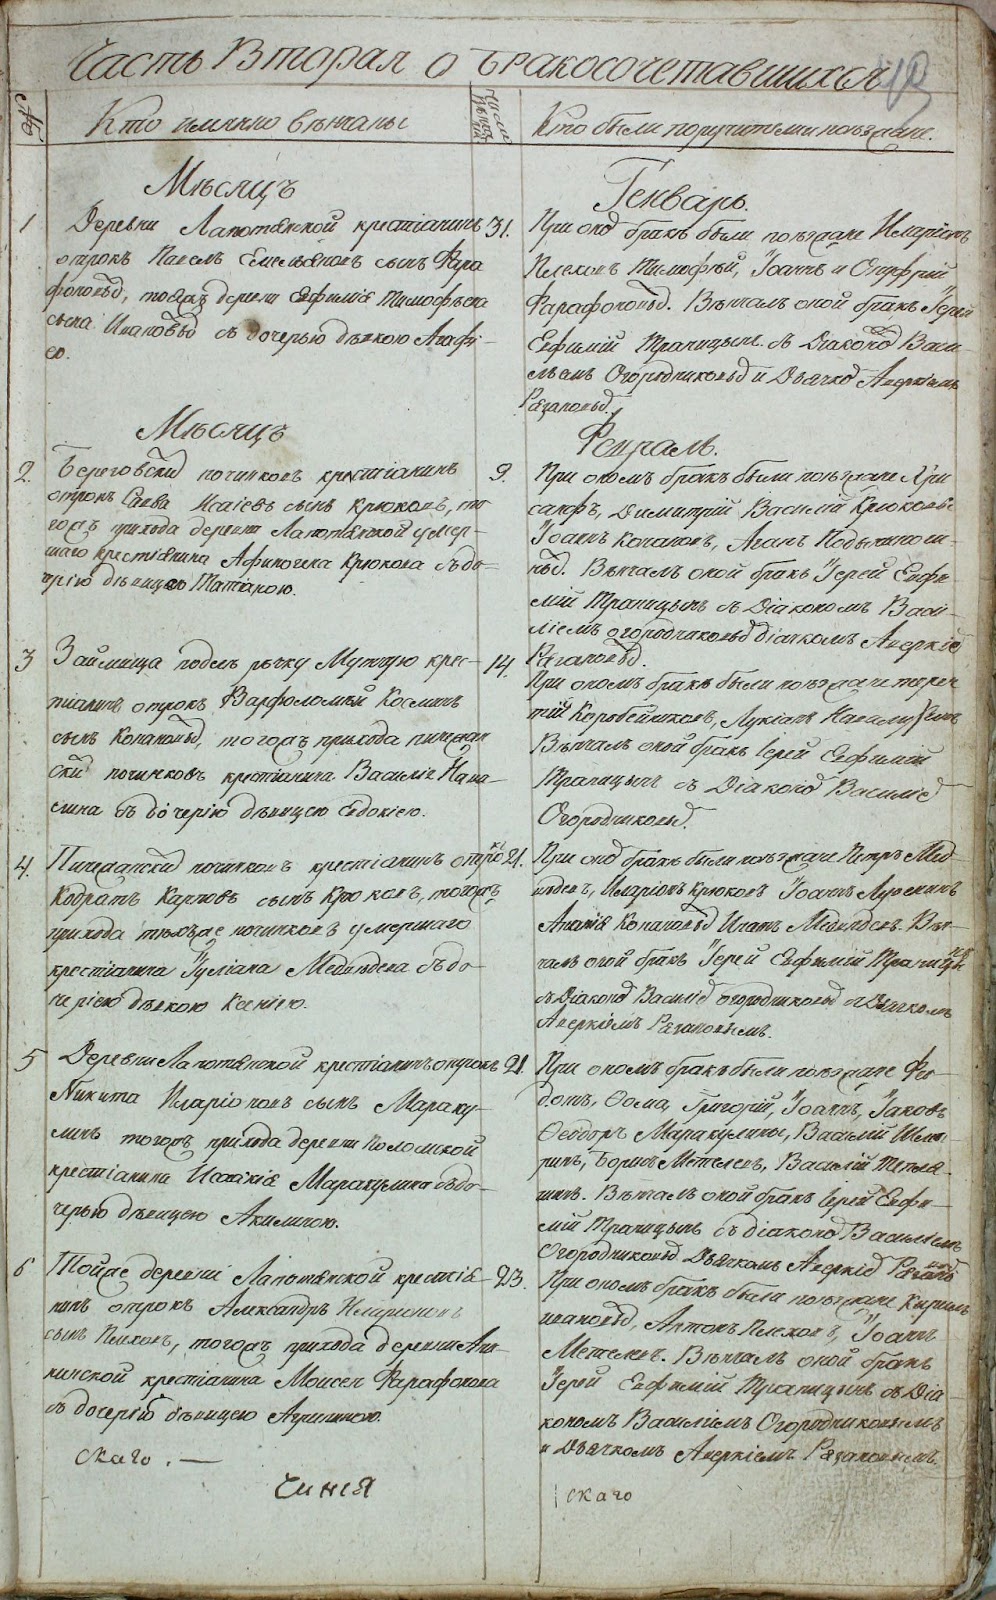 Часть Вторая о бракосочетавшихся
№
Кто имянно венчаны
число венчанія
Кто были поручители и поѣзжане.
Мѣсяцъ
Генварь.
1
Деревни Лапотѣнской крестіанинъ
отрокъ Павелъ Емельяновъ сынъ Фара
фоновъ, тояжъ деревни Евфиміа Тимофѣева
сына Ивановъ съ дочерью дѣвкою Агафі-
ею.
31.
При оно бракѣ были поѣзжане Иларіонъ
Плеховъ Тимофѣй, Іоаннъ и Онуфрій
Фарафоновы. Вѣнчалъ оной бракъ Іерей
Евфимій Трапицынъ съ Діакономъ Васи-
льемъ Огородниковы и Дьячкомъ Аверкіемъ
Рязановы.
Мѣсяцъ
Февраль.
2.
Береговски починковъ крестіанинъ
отрокъ Савва Исаіевъ сынъ Крюковъ, то
гожъ прихода деревни Лапотѣнской умер-
шаго крестіанина Афиногена Крюкова съ до-
черію дѣвицею Татіаною.
9.
При ономъ бракѣ были поѣзжане Хри
санфъ, Димитрій Василій Крюковы
Іоаннъ Копановъ,
Вѣнчалъ оной бракъ Іерей Евфи-
мій Трапицынъ съ Діакономъ Васи-
ліемъ огородниковы діачкомъ Аверкіе
Рязановы.
3
Займища подлѣ рѣчку Мутную крес-
тіанинъ отрокъ Варфоломѣй Косминъ
сынъ Копановъ, тогожъ прихода пиждан
ски починковъ крестіанина Василіа
съ дочерію дѣвицею Евдокіею.
14.
При ономъ бракѣ были поѣзжане терен
тій Коробейниковъ, Лукіанъ
Вѣнчалъ оной бракъ Іерей Евфимій
Трапицынъ съ Діаконо Василіе
Огородниковы.
4.
починковъ крестіанинъ отрокъ
Кодратъ Карповъ сынъ Крюковъ, тогожъ
прихода тѣхже починковъ умершаго
крестіанина Іуліана Медвѣдева съ до-
черію дѣвкою Ксеніею.
21.
При оно бракѣ были поѣзжане Петръ Мед
вѣдевъ, Иларіонъ Крюковъ Іоаннъ
Ананіа Копановы Игнатъ Медвѣдевъ. Вѣн-
чалъ оной бракъ Іерей Евфимій Трапицынъ
съ Діаконо Василіе огородниковы и Дьячкомъ
Аверкіемъ Рязановымъ.
5
Деревни Лапотѣнской крестіанинъ отрокъ
Никита Иларіоновъ сынъ Мараку-
линъ тогожъ прихода деревни Поломской
крестіанина Исаакіа Маракулина съ до-
черью дѣвицею Акилиною.
21.
При ономъ бракѣ были поѣзжане Фе-
дотъ, Ѳома, Григорій, Іоаннъ, Іаковъ
Ѳеодоръ Маракулины, Василій
Борисъ Метелевъ, Василій Тепля-
шинъ. Вѣнчалъ оной бракъ Іерей Евфи-
мій Трапицынъ съ діаконо Василіемъ
Огородниковы Дьячкомъ Аверкіе Рязановы
6
Тойже деревни Лапотѣнской крестіа-
нинъ отрокъ Александръ Иларіоновъ
сынъ Плеховъ, тогожъ прихода деревни Ани-
кинской крестіанина Моисея Фарафонова
съ дочерію дѣвицею Агрипиною.
23.
При ономъ бракѣ были поѣзжане Кирилъ
Антонъ Плеховъ, Іоаннъ
Метелевъ. Вѣнчалъ оной бракъ
Іерей Евфимій Трапицынъ съ Діа-
кономъ Василіемъ Огородниковымъ
и Дьячкомъ Аверкіемъ Рязановымъ
скаго. —
чинія
скаго